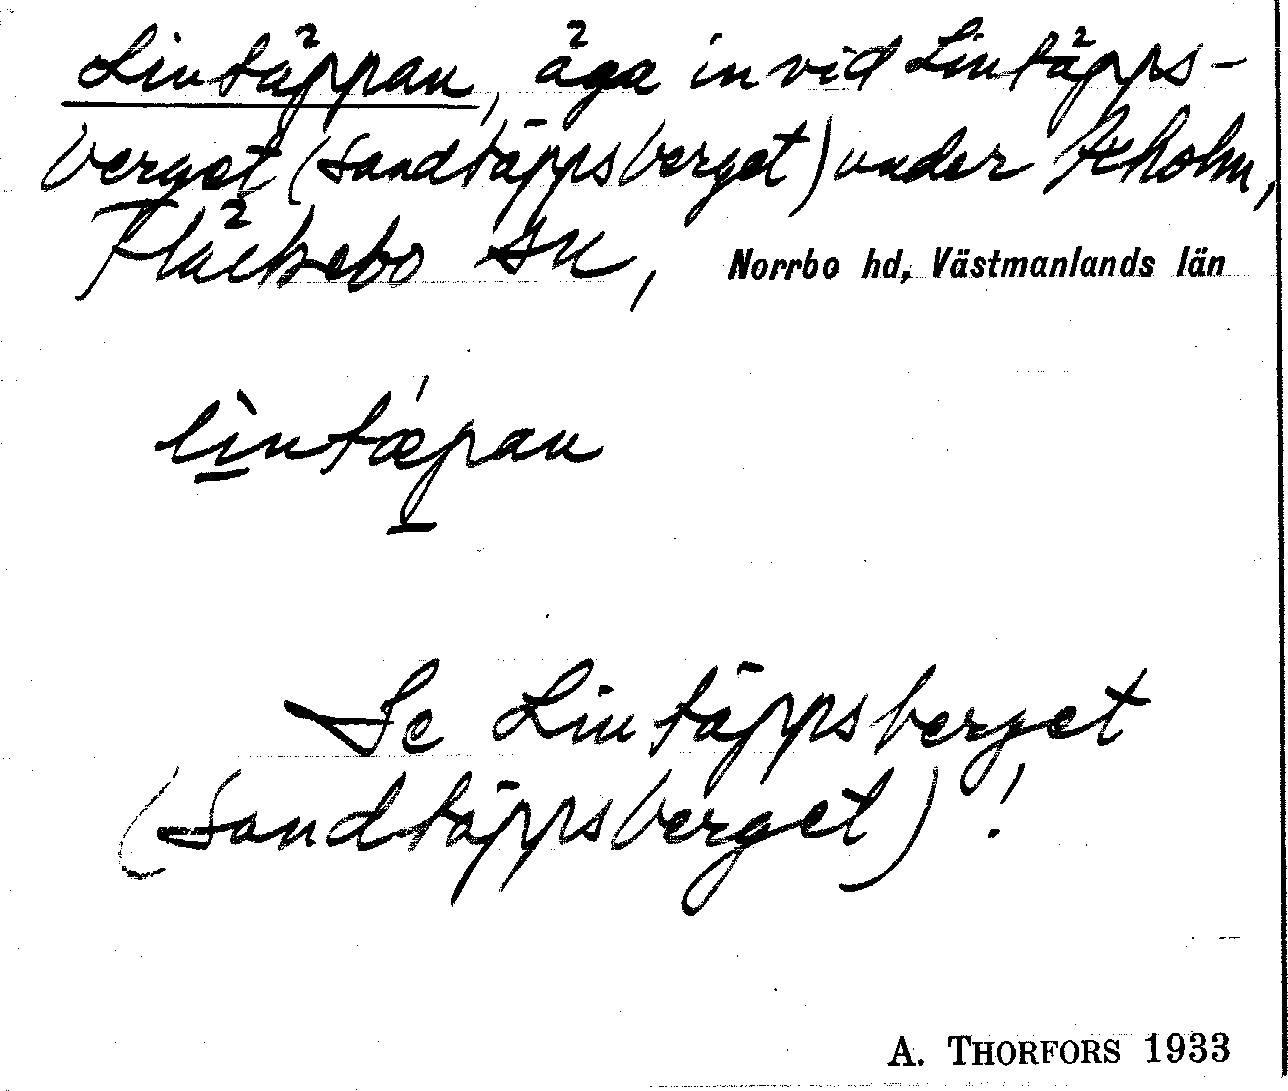 Lintäppan, äga invid Lintäpps-
berget (Sandtäppsberget) under
Fläckebo sn, Norrbo hd, Västmanlands län
lìntǽpan
Se Lintäppsberget
(Sandtäppsberget)!
A. THORFORS 1933